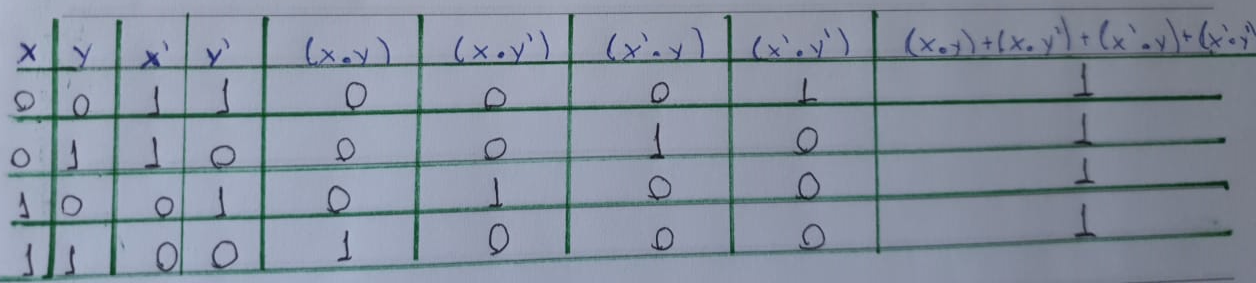 x y x' y' (x.y) (x.y') (x'.y) (x'.y') (x.y)+(x.y')+(x'.y)+(x'.y')
0 0 1 1 0 0 0 1 1
0 1 1 0 0 0 1 0 1
1 0 0 1 0 1 0 0 1
1 1 0 0 1 0 0 0 1